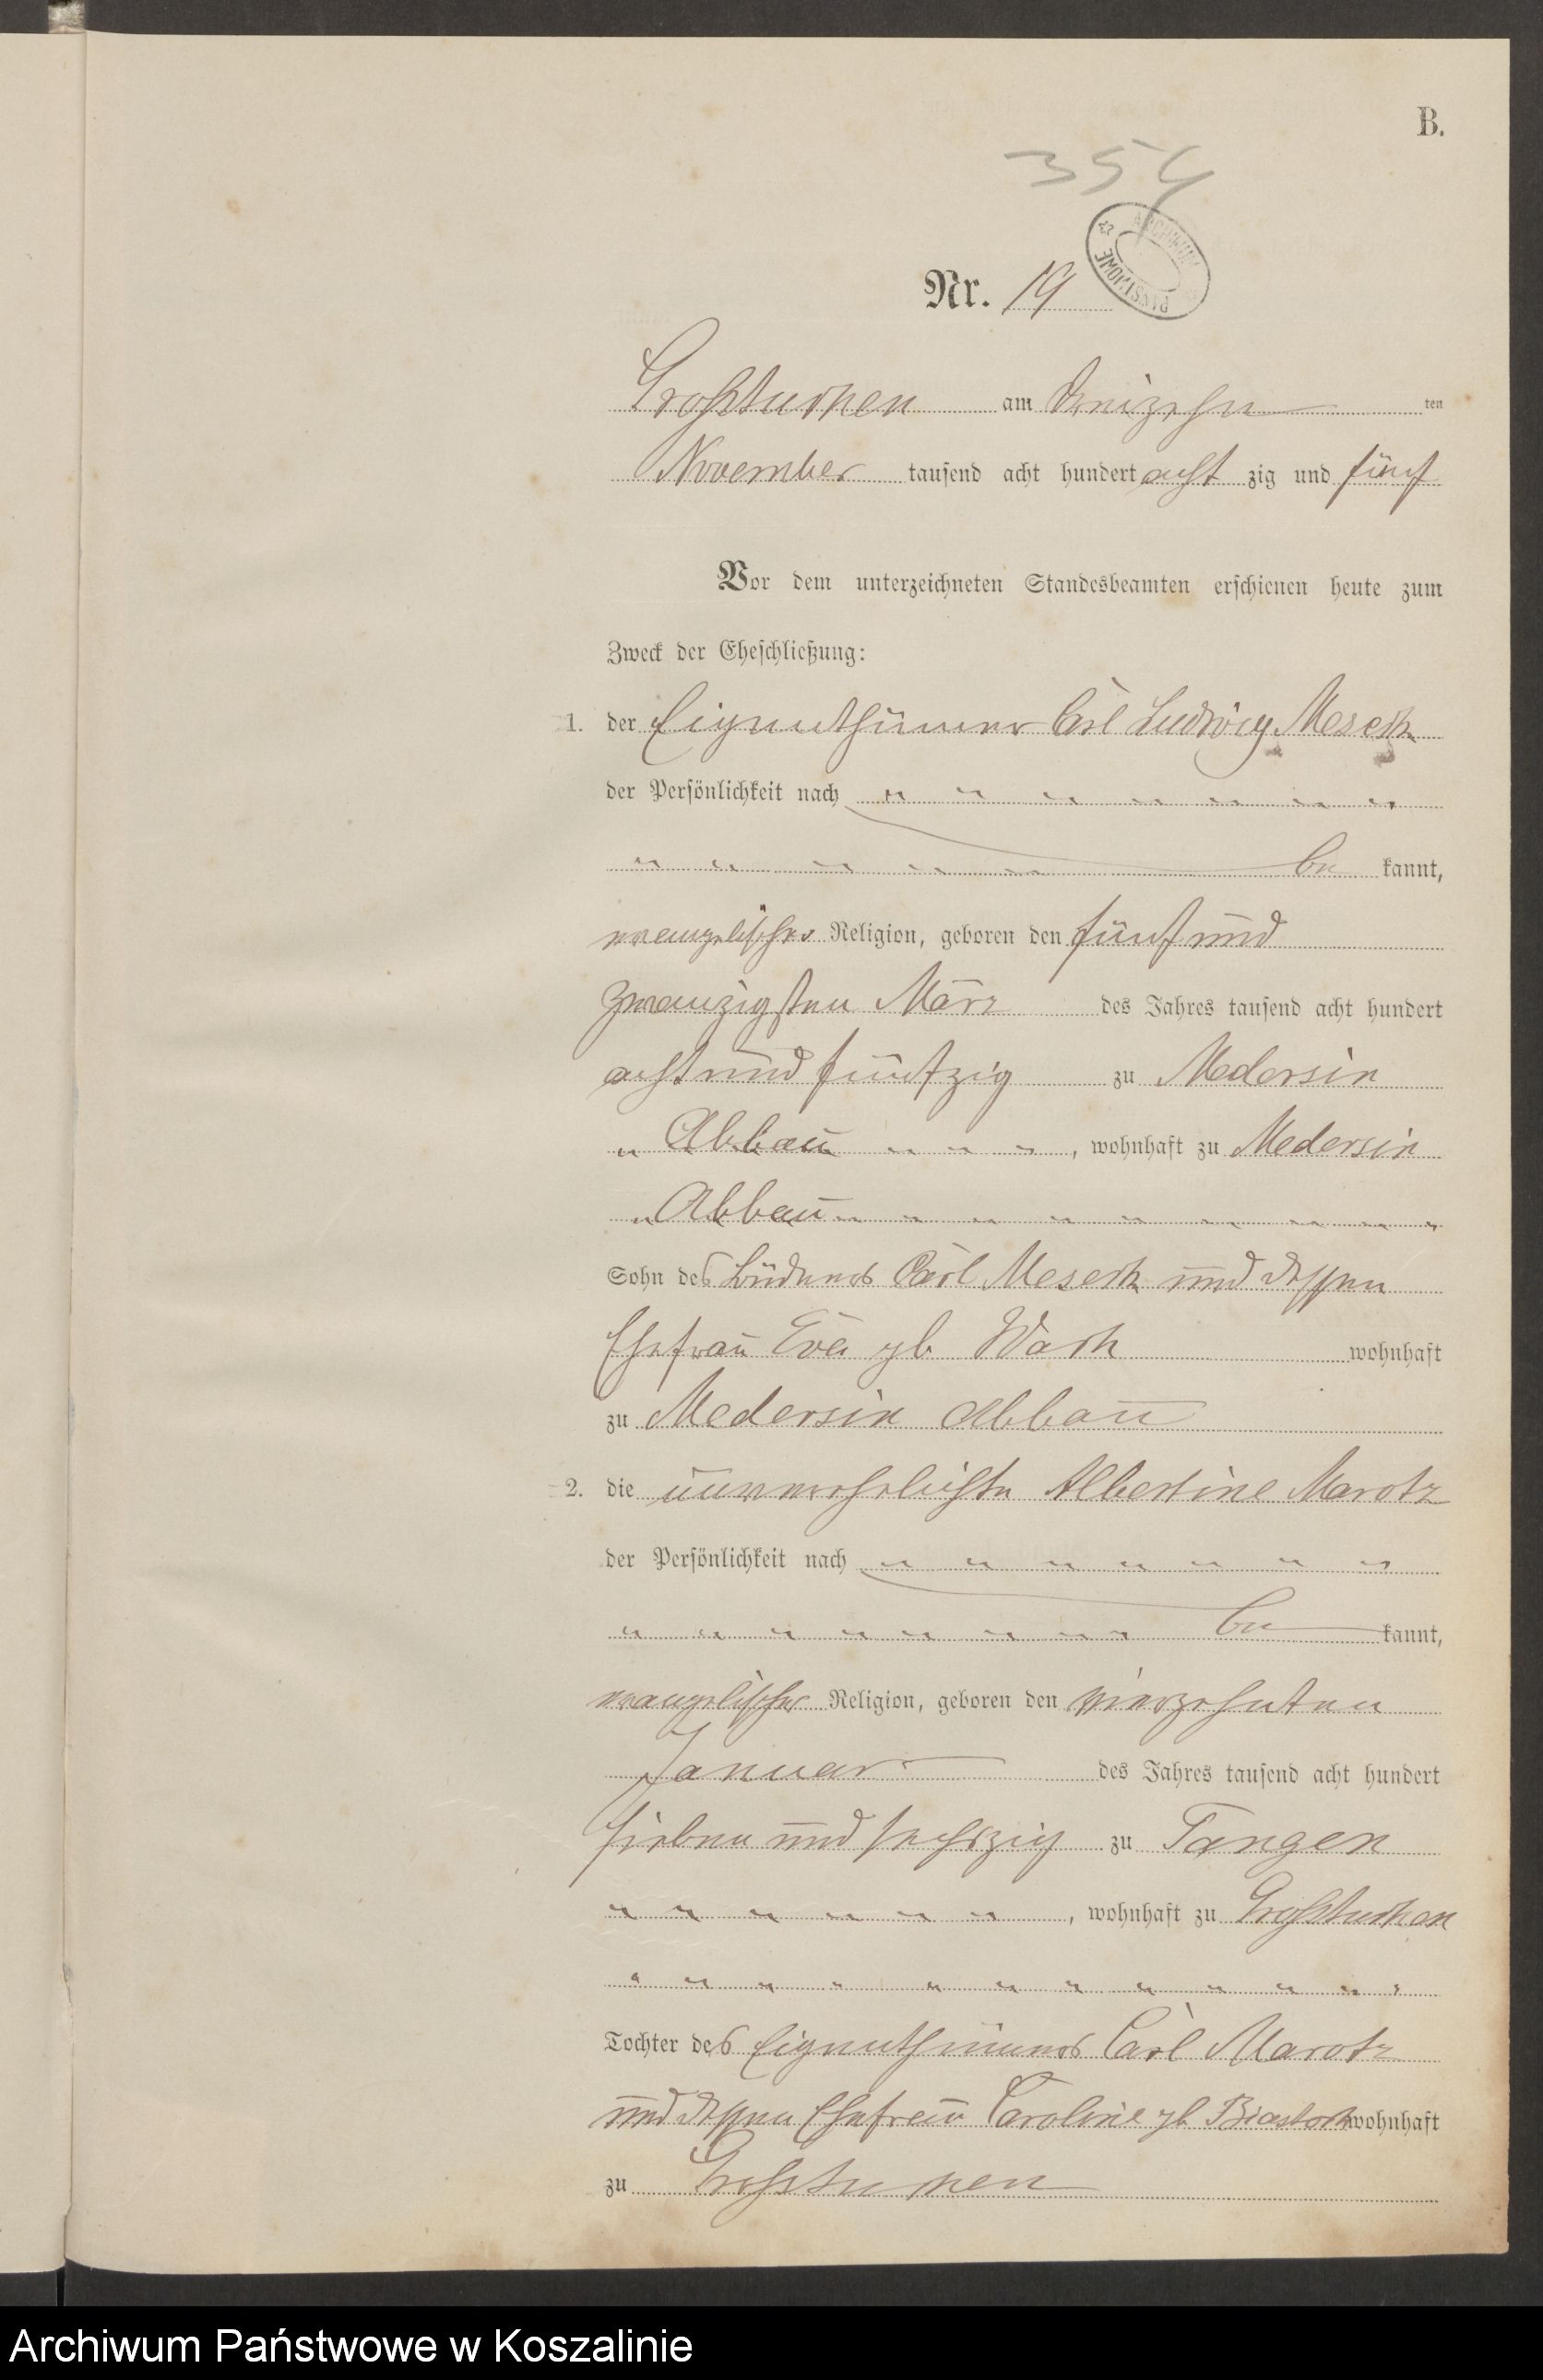 B.
354
Nr. 19
ARCHIWUM PAŃSTWOWE
Großtuchen am dreizehn ten
November tausend acht hundert acht zig und fünf
Vor dem unterzeichneten Standesbeamten erschienen heute zum
Zweck der Eheschließung:
1. der Eigenthümer Carl Ludwig Meseck
der Persönlichkeit nach
be kannt,
evangelischer Religion, geboren den fünf und
zwanzigsten März des Jahres tausend acht hundert
acht und fünfzig zu Medersin
Abbau, wohnhaft zu Medersin
Abbau
Sohn des Büdners Carl Meseck und dessen
Ehefrau Eva gb wohnhaft
zu Medersin Abbau
2. die unverehelichte Albertine Marotz
der Persönlichkeit nach
be kannt,
evangelischer Religion, geboren den vierzehnten
Januar des Jahres tausend acht hundert
sieben und sechszig zu Tangen
, wohnhaft zu Großtuchen
Tochter des Eigenthümers Carl Marotz
und dessen Ehefrau Caroline gb Biastock wohnhaft
zu Großtuchen
Archiwum Państwowe w Koszalinie